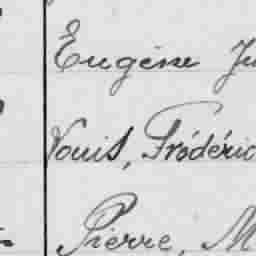 Eugène Ju
Louis, Frédéric
Pierre, M